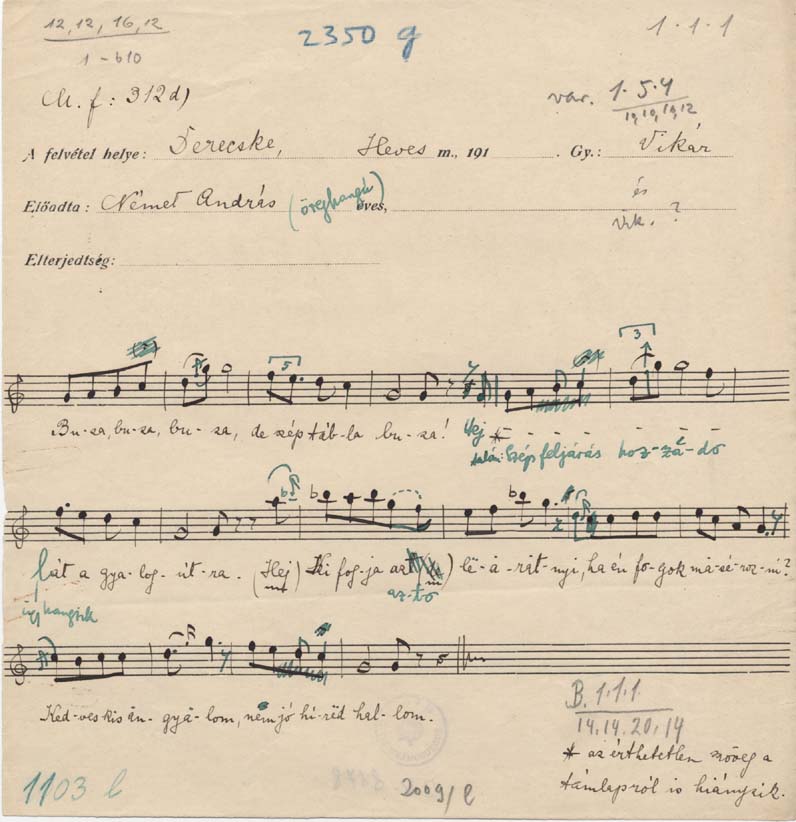 12, 12, 16, 12
1 - b10
2350 g
1 · 1 · 1
M. f: 312d)
var. 1 · 5 · 4
A felvétel helye: Derecske, Heves m., 191 . Gy.: Vikár
Előadta: Német András (öreghangú) éves,
és
Vik. ?
Elterjedtség:
5
3
Bu-za, bu-za, bu-za, de szép táb-la bu-za! Hej * - - - - - - -
talán: Szép feljárás hoz-zá-do
Lát a gya-log-út-ra. (Hej) Ki fog-ja azt le-a-rat-nyi, ha én fo-gok má-sé-roz-ni?
az-to
így hangzik
Ked-ves kis an-gya-lom, nem jó hí-red hal-lom.
B. 1. 1. 1.
14. 14. 20. 14
* az érthetetlen szöveg a
támlapról is hiányzik.
1103 l
2009/l